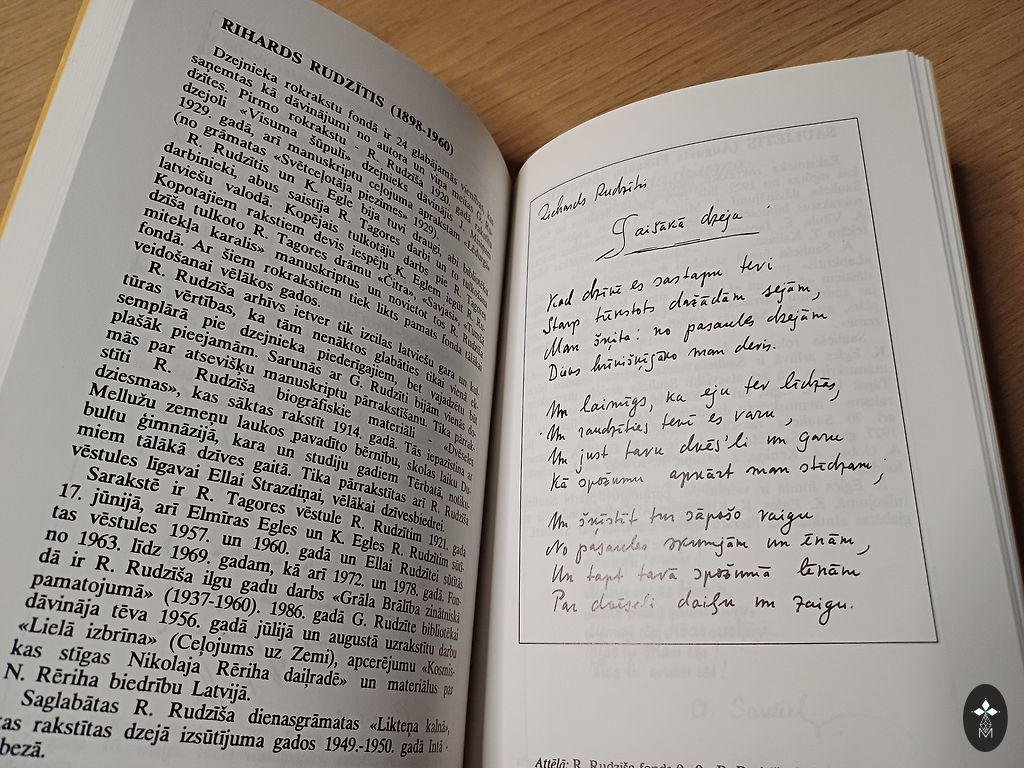 RIHARDS RUDZĪTIS (1898-1960)
Dzejnieka rokrakstu fondā ir 24 glabājamās vienības, kas
saņemtas kā dāvinājumi no autora un viņa meitas G. Ru-
dzītes. Pirmo rokrakstu - R. Rudzīša 1920. gadā rakstīto
dzejoli «Visuma šūpuli» dzejnieks dāvināja J. Misiņam
1929. gadā, arī manuskriptu ceļojuma aprakstam «Lāzdonā»
(no grāmatas «Svētceļotāja piezīmes» 1929).
R. Rudzītis un K. Egle bija tuvi draugi, abi bibliotēkas
darbinieki, abus saistīja R. Tagores darbi un to tulkošana
latviešu valodā. Kopējais tulkotāju darbs pie R. Tagores
Kopotajiem rakstiem devis iespēju K. Eglem iegūt R. Ru-
dzīša tulkoto R. Tagores drāmu «Čitra», «Savjasi» «Tumšā
mitekļa karalis» manuskriptus un novietot tos R. Rudzīša
fondā. Ar šiem rokrakstiem tiek likts pamats fonda tālākai
veidošanai vēlākos gados.
R. Rudzīša arhīvs ietver tik izcilas latviešu gara un kul-
tūras vērtības, ka tām nenāktos glabāties tikai vienā ek-
semplārā pie dzejnieka piederīgajiem, bet vajadzētu būt
plašāk pieejamām. Sarunās ar G. Rudzīti bijām vienās do-
mās par atsevišķu manuskriptu pārrakstīšanu. Tika pārrak-
stīti R. Rudzīša biogrāfiskie materiāli - «Dvēseles
dziesmas», kas sāktas rakstīt 1914. gadā. Tās iepazīstina ar
Mellužu zemeņu laukos pavadīto bērnību, skolas laiku Du-
bultu ģimnāzijā, kara un studiju gadiem Tērbatā, notiku-
miem tālākā dzīves gaitā. Tika pārrakstītas arī R. Rudzīša
vēstules līgavai Ellai Strazdiņai, vēlākai dzīvesbiedrei.
Sarakstē ir R. Tagores vēstule R. Rudzītim 1921. gada
17. jūnijā, arī Elmīras Egles un K. Egles R. Rudzītim sūtī-
tas vēstules 1957. un 1960. gadā un Ellai Rudzītei sūtītās
no 1963. līdz 1969. gadam, kā arī 1972. un 1978. gadā. Fon-
dā ir R. Rudzīša ilgu gadu darbs «Grāla Brālība zinātniskā
pamatojumā» (1937-1960). 1986. gadā G. Rudzīte bibliotēkai
dāvināja tēva 1956. gadā jūlijā un augustā uzrakstītu darbu
«Lielā izbrīna» (Ceļojums uz Zemi), apcerējumu «Kosmis-
kas stīgas Nikolaja Rēriha daiļradē» un materiālus par
N. Rēriha biedrību Latvijā.
Saglabātas R. Rudzīša dienasgrāmatas «Likteņa kalnā»,
kas rakstītas dzejā izsūtījuma gados 1949.-1950. gadā Intā -
bezā.
Richards Rudzītis
Gaišākā dzeja
Kad dzīvē es sastapu tevi
Starp tūkstots dažādām sejām,
Man šķita: no pasaules dzejām
Dievs man devis.
Un laimīgs, ka eju tev līdzās,
Un raudzīties tevī es varu,
Un just tavu dvēs'li un garu
Kā spožumu apkārt man slīdzam;
Un šķīstīt tur sāpošo vaigu
No pasaules skumjām un ēnām,
Un tapt tavā spožumā lēnām
Par dvēseli daiļu un zaigu.
Attēlā: R. Rudzīša fonds